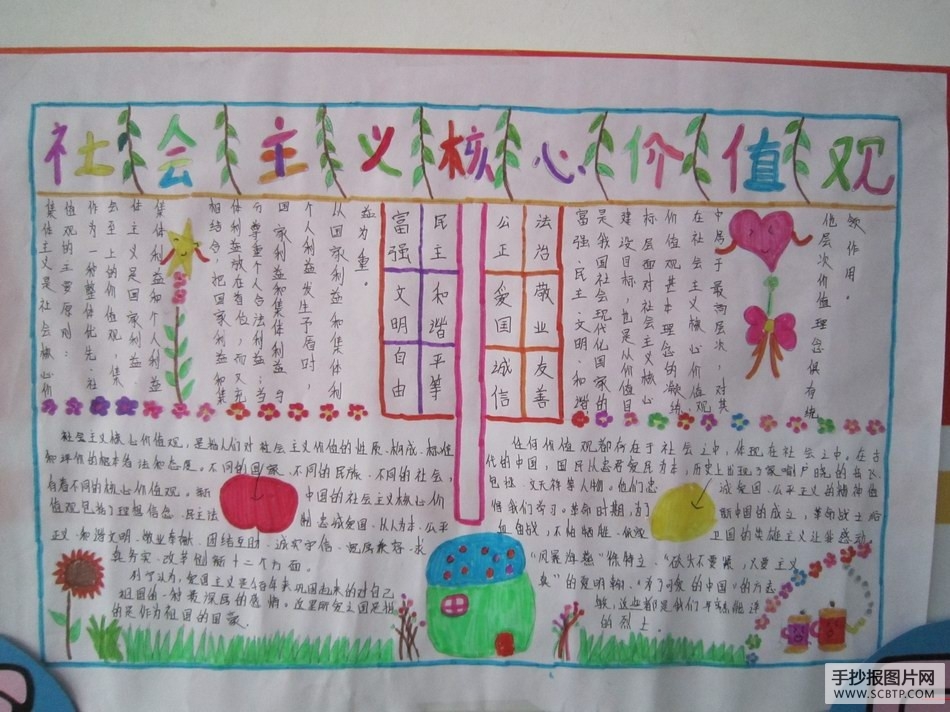 社会主义核心价值观
集体主义是社会核心价
值观的主要原则:
作为一种整体优先、社
会至上的价值观,集
体主义是国家利益、
集体利益和个人利益
相结合,把国家利益和集
体利益放在首位,而又充
分尊重个人合法利益;当
国家利益和集体利益与
个人利益发生矛盾时,
以国家利益和集体利
益为重。
富强 民主
文明 和谐
自由 平等
公正 法治
爱国 敬业
诚信 友善
富强、民主、文明、和谐
是我国社会现代化国家的
建设目标,也是从价值目
标层面对社会主义核心
价值观基本理念的凝练,
在社会主义核心价值观
中居于最高层次,对其
他层次价值理念俱有统
领作用。
社会主义核心价值观,是指人们对社会主义价值的性质、构成、标准
和评价的根本看法和态度。不同的国家、不同的民族、不同的社会,
有着不同的核心价值观。新中国的社会主义核心价
值观包括了理想信念、民主法制、忠诚爱国、以人为本、公平
正义、文明、敬业奉献、团结互助、诚实守信、求
真务实、改革创新十二个方面。
列宁认为,爱国主义是千百年来巩固起来的对自己
祖国的一种最深厚的感情。这里所爱之国是指
的是作为祖国的国家。
任何价值观都存在于社会之中,体现在社会之中。在古
代的中国,国民以忠君爱民为本,历史上出现了家喻户晓的岳飞、
包拯、文天祥等人物。他们忠诚爱国、公平正义的精神值
得我们学习。革命时期,为了新中国的成立,革命战士浴
血奋战,不怕牺牲、保卫国的英雄主义让我感动。
的夏明翰、《可爱的中国》的方志
敏,这些都是我们耳熟能详
的烈士。
手抄报图片网
WWW.SCBTP.COM